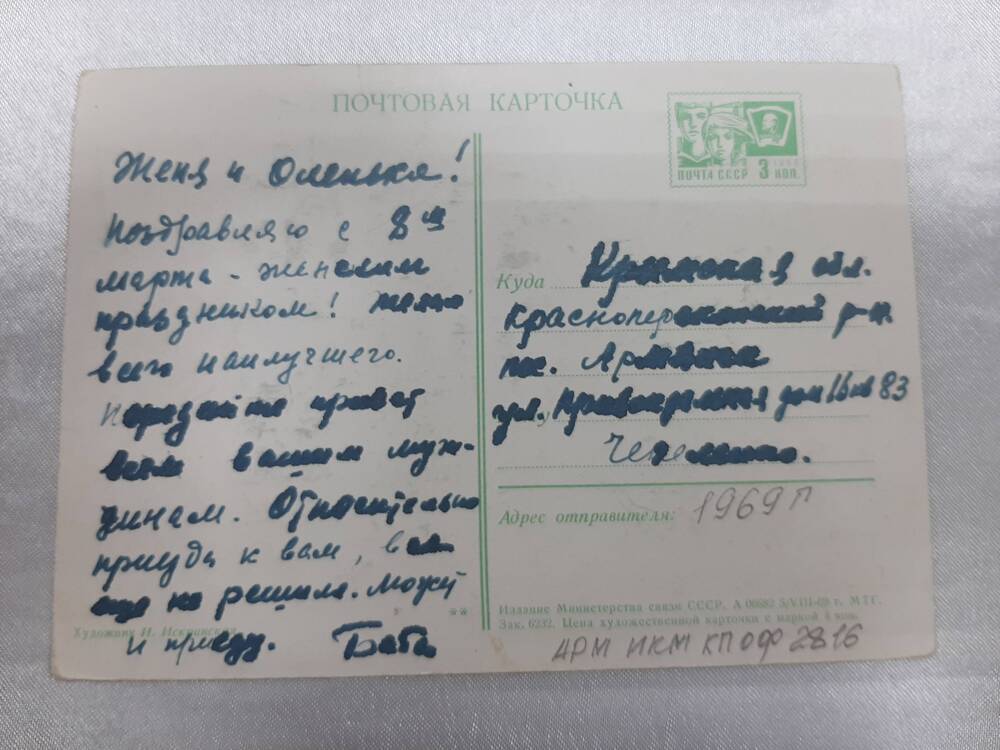 ПОЧТОВАЯ КАРТОЧКА
ПОЧТА СССР 3 КОП.
Женя и Оленька!
Поздравляю с 8 м
марта - женским
праздником! желаю
всего наилучшего.
Передайте привет
всем вашим муж-
чинам. Относительно
приезда к вам, 
еще не решила. может
и приеду. Баба
Художник И. Искринская
**
Куда Крымская обл.
Красноперекопский р-н.
пос. Армянск
ул. дом 16 кв 83
Чепеленко.
Адрес отправителя: 1969 г
Издание Министерства связи СССР. А 00682 5/VIII-69 г. МТГ.
Зак. 6232. Цена художественной карточки с маркой 4 коп.
АРМ ИКМ КП ОФ 2816